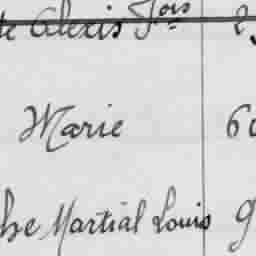 te Alexis Fois 2
Marie 60
he Martial Louis 9